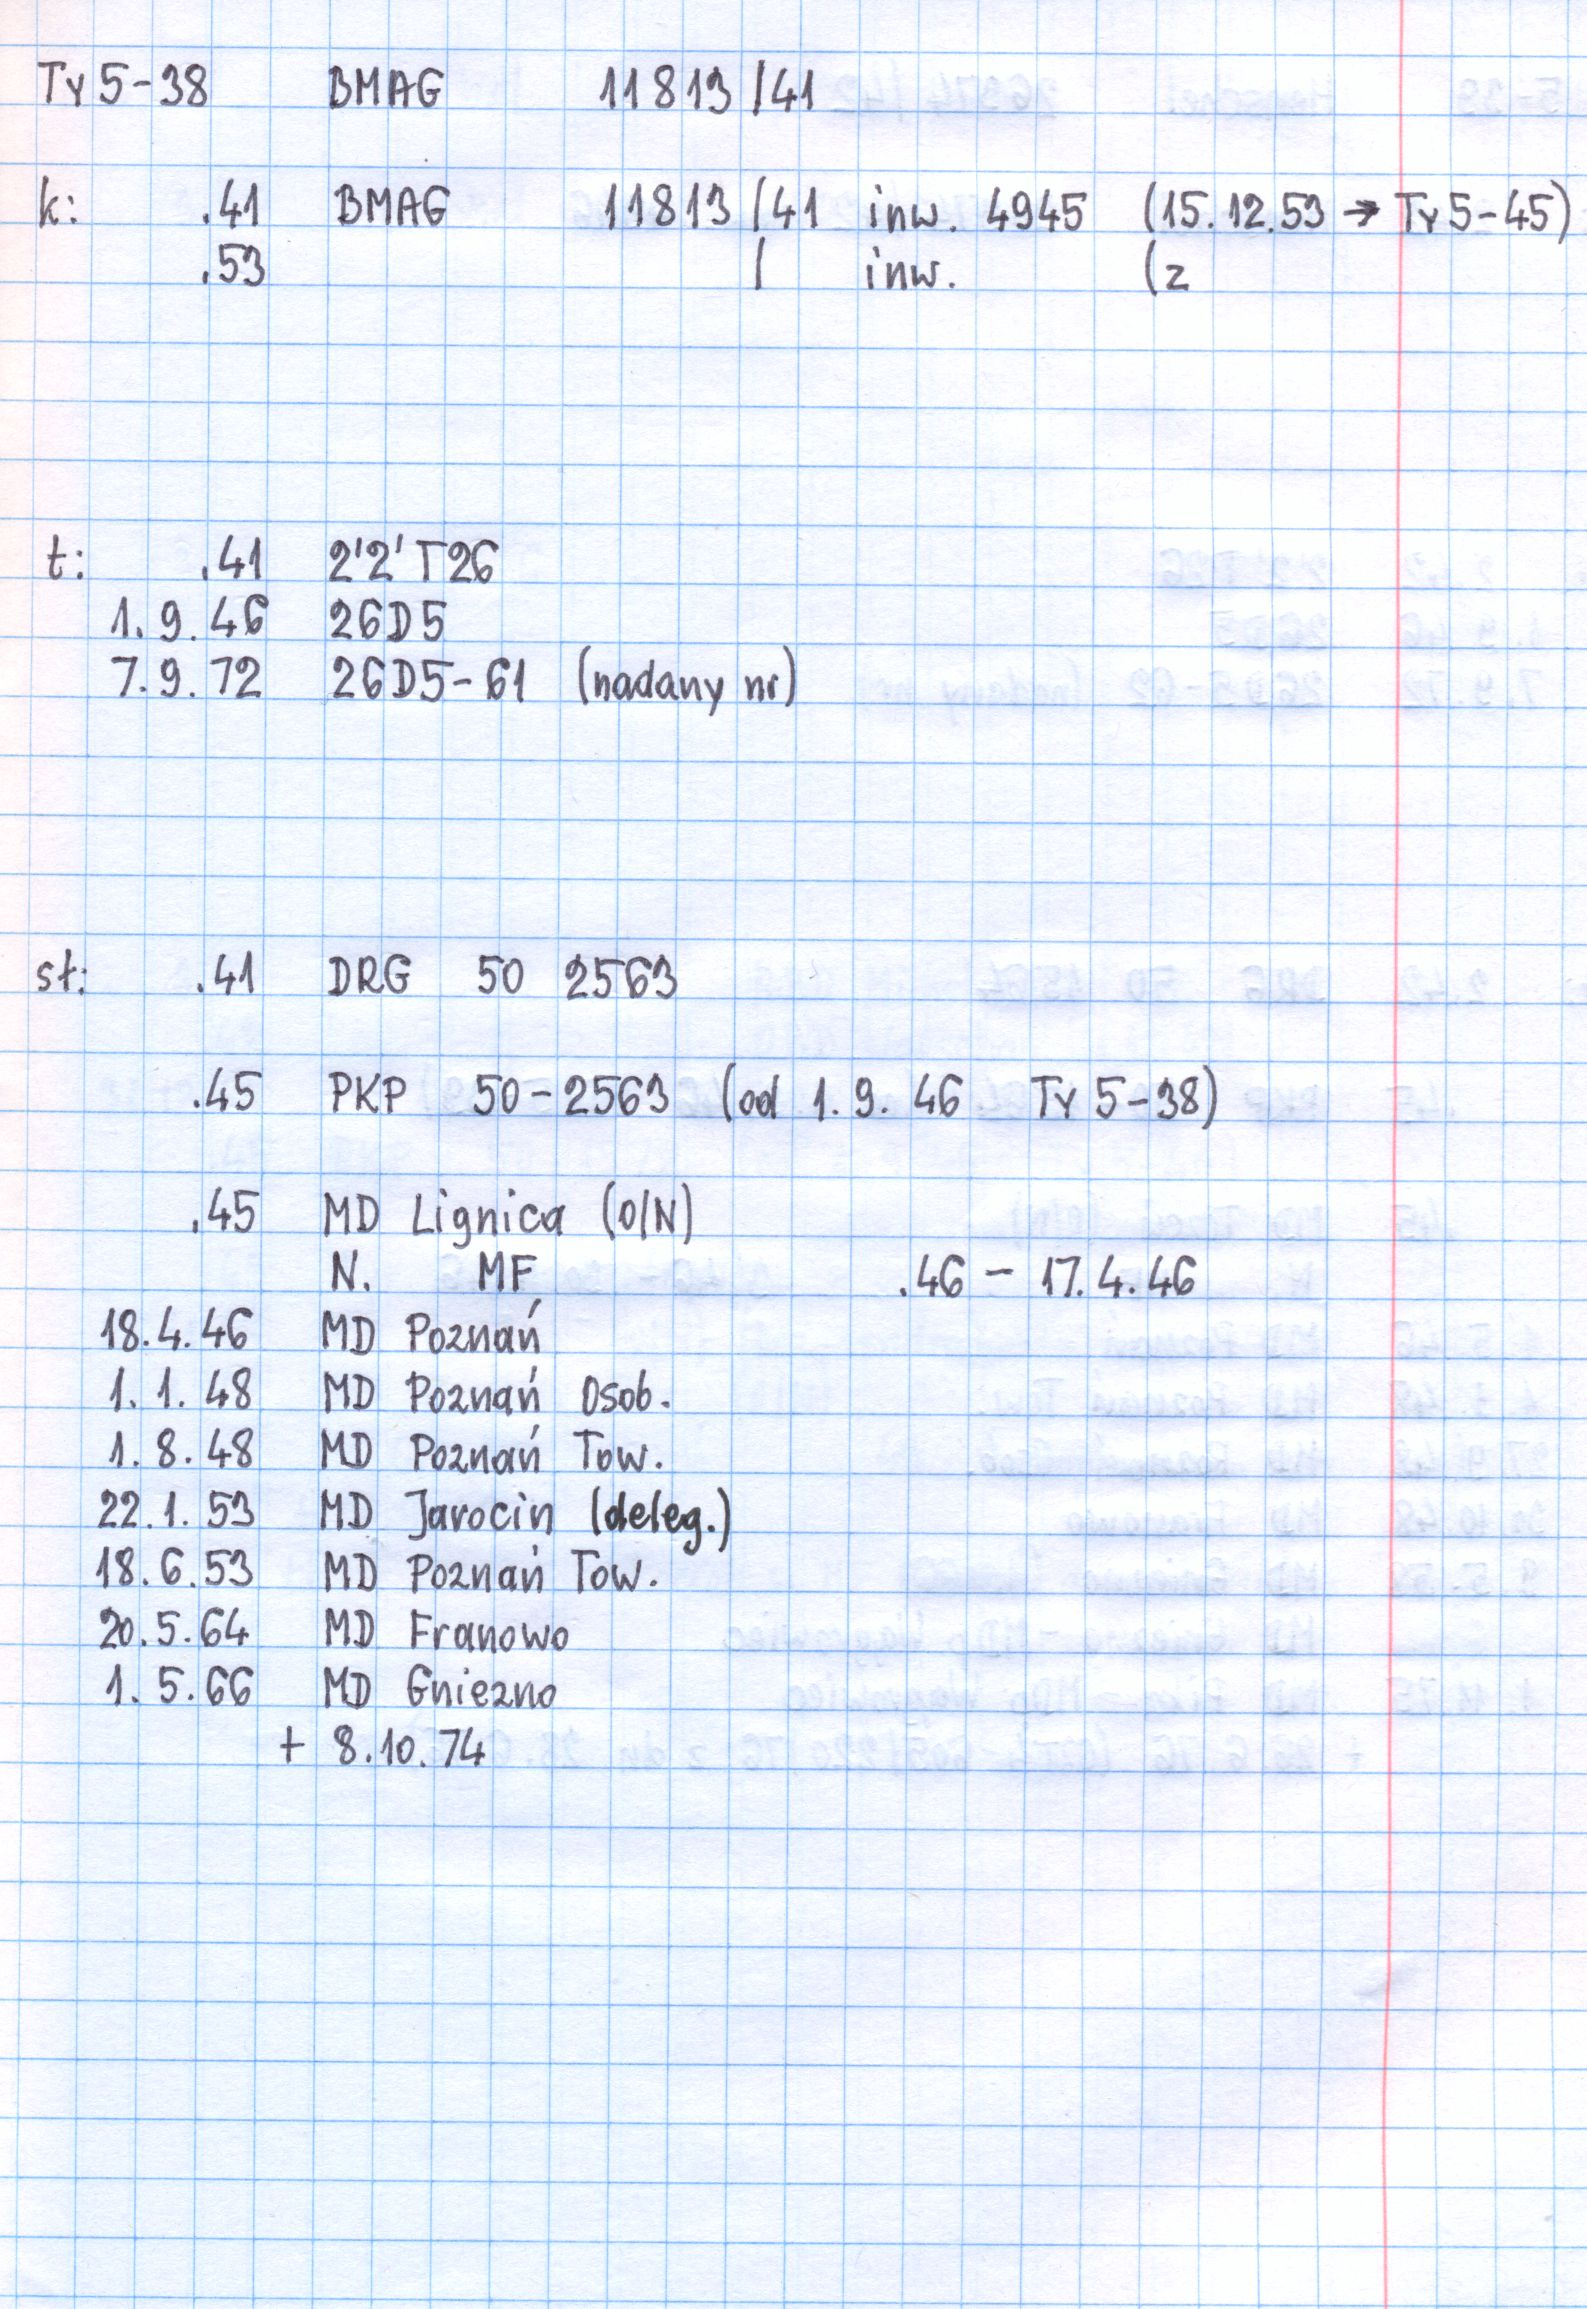 Ty 5-38 BMAG 11813/41
k: .41 BMAG 11813/41 inw. 4945 (15.12.53 → Ty 5-45)
.53 / inw. (z
t: .41 2'2'T26
1.9.46 26D5
7.9.72 26D5-61 (nadany nr)
st: .41 DRG 50 2563
.45 PKP 50-2563 (od 1.9.46 Ty 5-38)
.45 MD Lignica (O/N)
N. MF .46 - 17.4.46
18.4.46 MD Poznań
1.1.48 MD Poznań Osob.
1.8.48 MD Poznań Tow.
22.1.53 MD Jarocin (deleg.)
18.6.53 MD Poznań Tow.
20.5.64 MD Franowo
1.5.66 MD Gniezno
+ 8.10.74